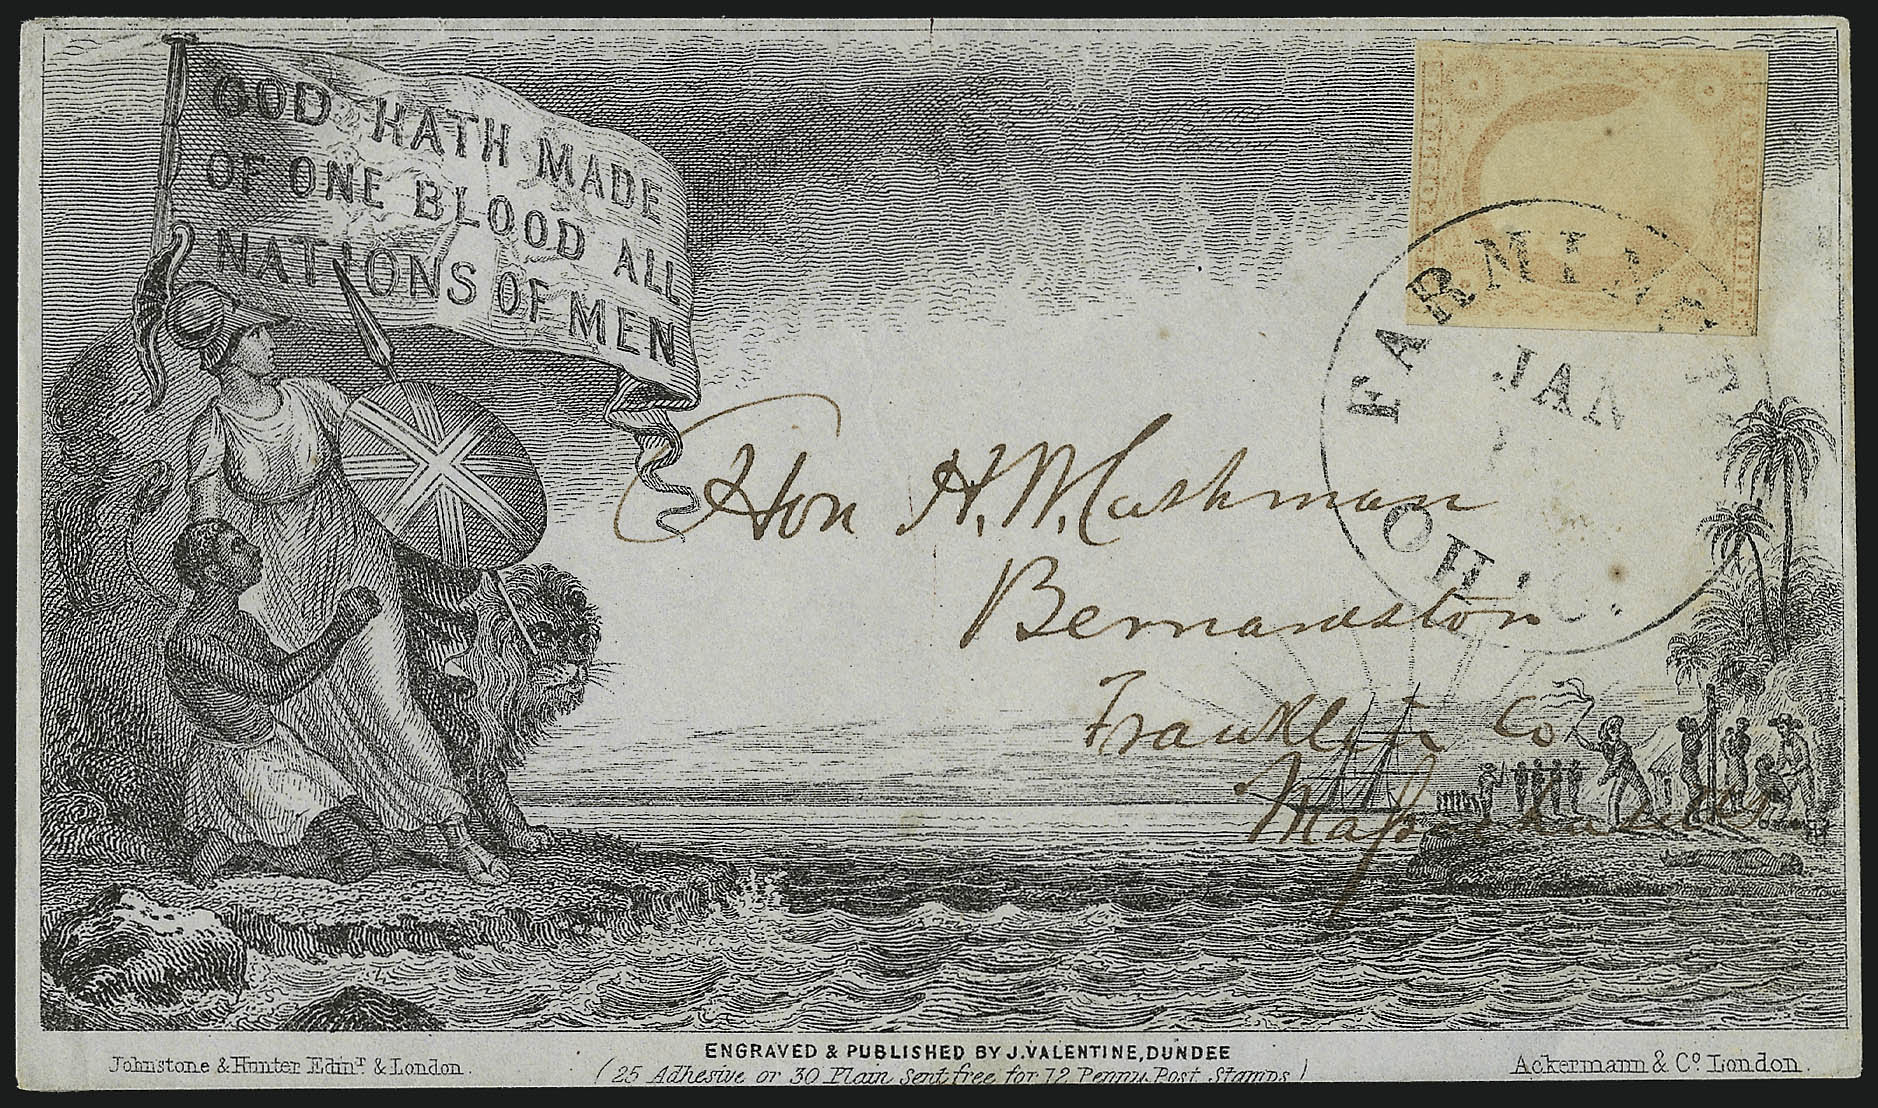 GOD HATH MADE
OF ONE BLOOD ALL
NATIONS OF MEN
FARMINGTON
JAN
OHIO.
Hon H. W. Cushman
Bernardston
Franklin Co
Massachusetts
ENGRAVED & PUBLISHED BY J. VALENTINE, DUNDEE
Johnstone & Hunter Edinr & London.
(25 Adhesive or 30 Plain sent free for 12 Penny Post Stamps)
Ackermann & Co. London.